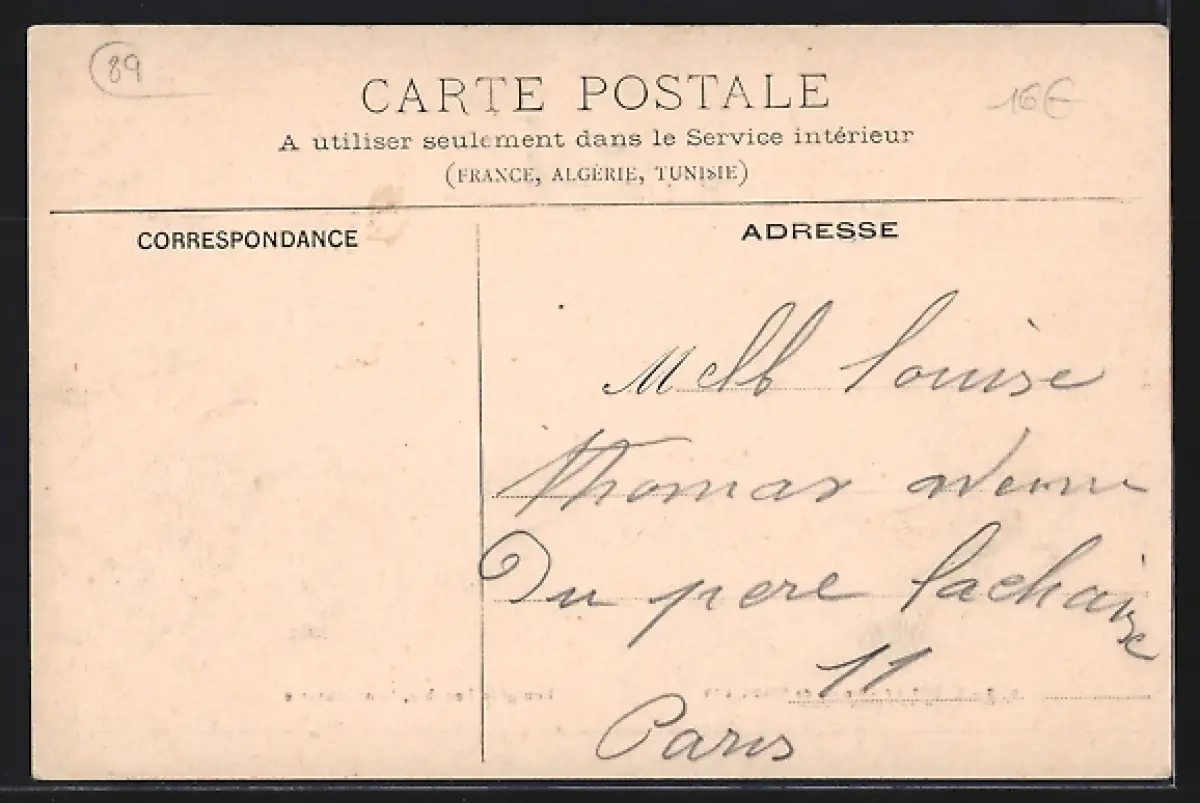 89
16€
CARTE POSTALE
A utiliser seulement dans le Service intérieur
(FRANCE, ALGÉRIE, TUNISIE)
CORRESPONDANCE
ADRESSE
Melle louise
Thomas
Du pere lachaise
11
Paris